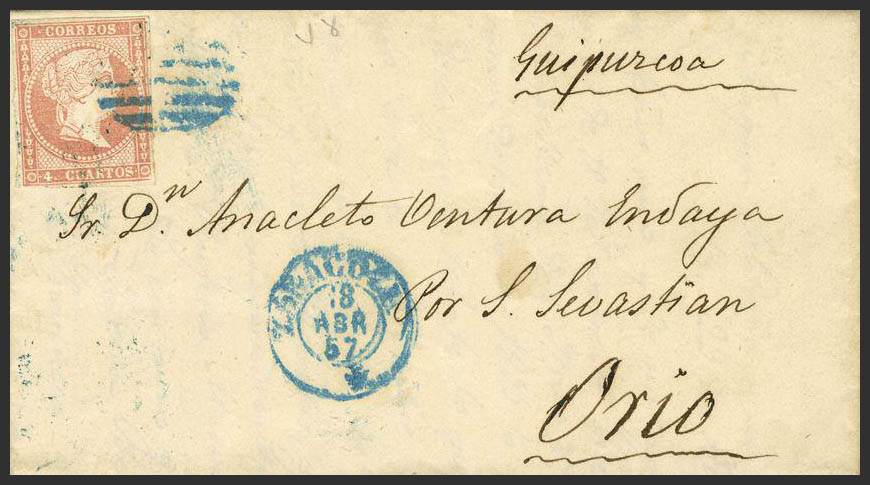 CORREOS
4. CUARTOS
Guipurcoa
Sr. Dn. Anacleto Ventura Endaya
Por S. Sevastian
Orio
ZARAGOZA
18
ABR
57